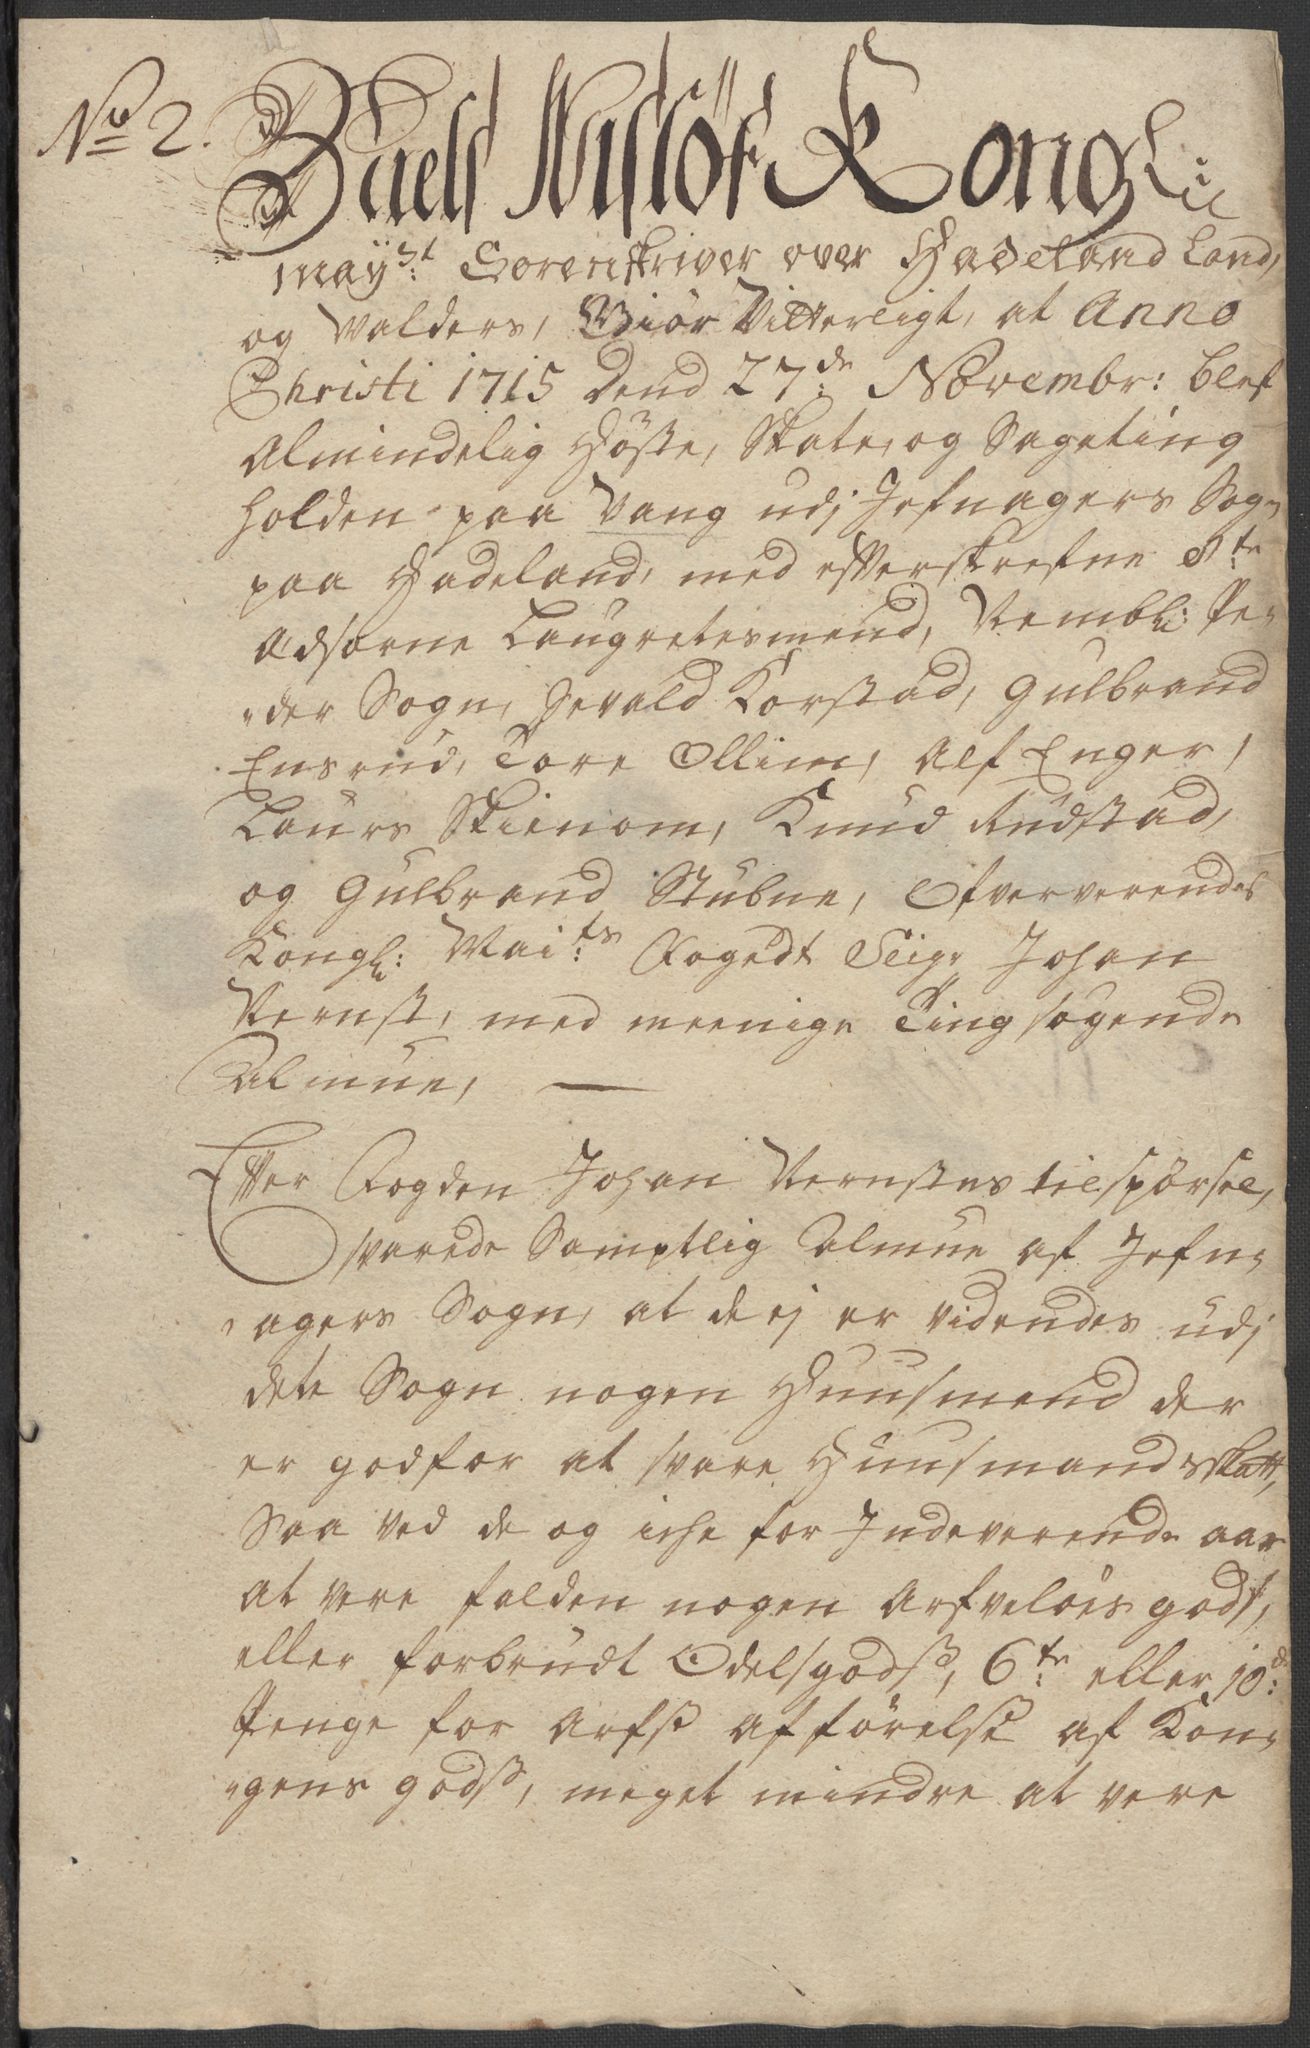 No 2. Niels Nilsøn Kongl:
May:st Sorenskriver over Hadeland Land,
og Walders, Giør Vitterligt, at Anno
Christi 1715 Dend 27de Novembr: blef
Almindelig Høste, Skate, og Sageting
holden paa Vang udj Jefnagers Sogn
paa Hadeland, med effterskrefne 8te
Edsorne Laugretesmend, Nembl: Pe-
der Sogn, Gevald Korstad, Gulbrand
Ensrud, Tore Ollim, Alf Enger,
Laurs Skienom, Knud Rudstad,
og Gulbrand Stubne, Ofververendes
Kongl: Mai:ts Fogedt Seigr Johan
Vernst, med meenige Tingsøgende
Almue,
Effter Fogden Johan Vernstes tilspørsel,
svarede Samptlig Almue af Jefn-
agers Sogn, at de ej er videndes udj
dete Sogn nogen Huusmend der
er godfor at svare Huusmandsskatt,
Saa ved de og iche for Indeverende aar
at vere falden nogen Arfveløes gods,
eller forbrudt Odelsgodss, 6te eller 10de
Penge for Arfs afførelse af Kon-
gens godss, meget mindre at vere